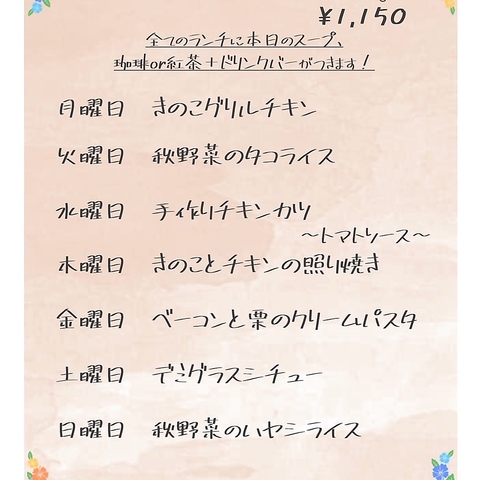 ¥1,150
全てのランチに本日のスープ、
珈琲or紅茶+ドリンクバーがつきます!
月曜日 きのこグリルチキン
火曜日 秋野菜のタコライス
水曜日 手作りチキンカツ
～トマトソース～
木曜日 きのことチキンの照り焼き
金曜日 ベーコンと栗のクリームパスタ
土曜日 デミグラスシチュー
日曜日 秋野菜のハヤシライス